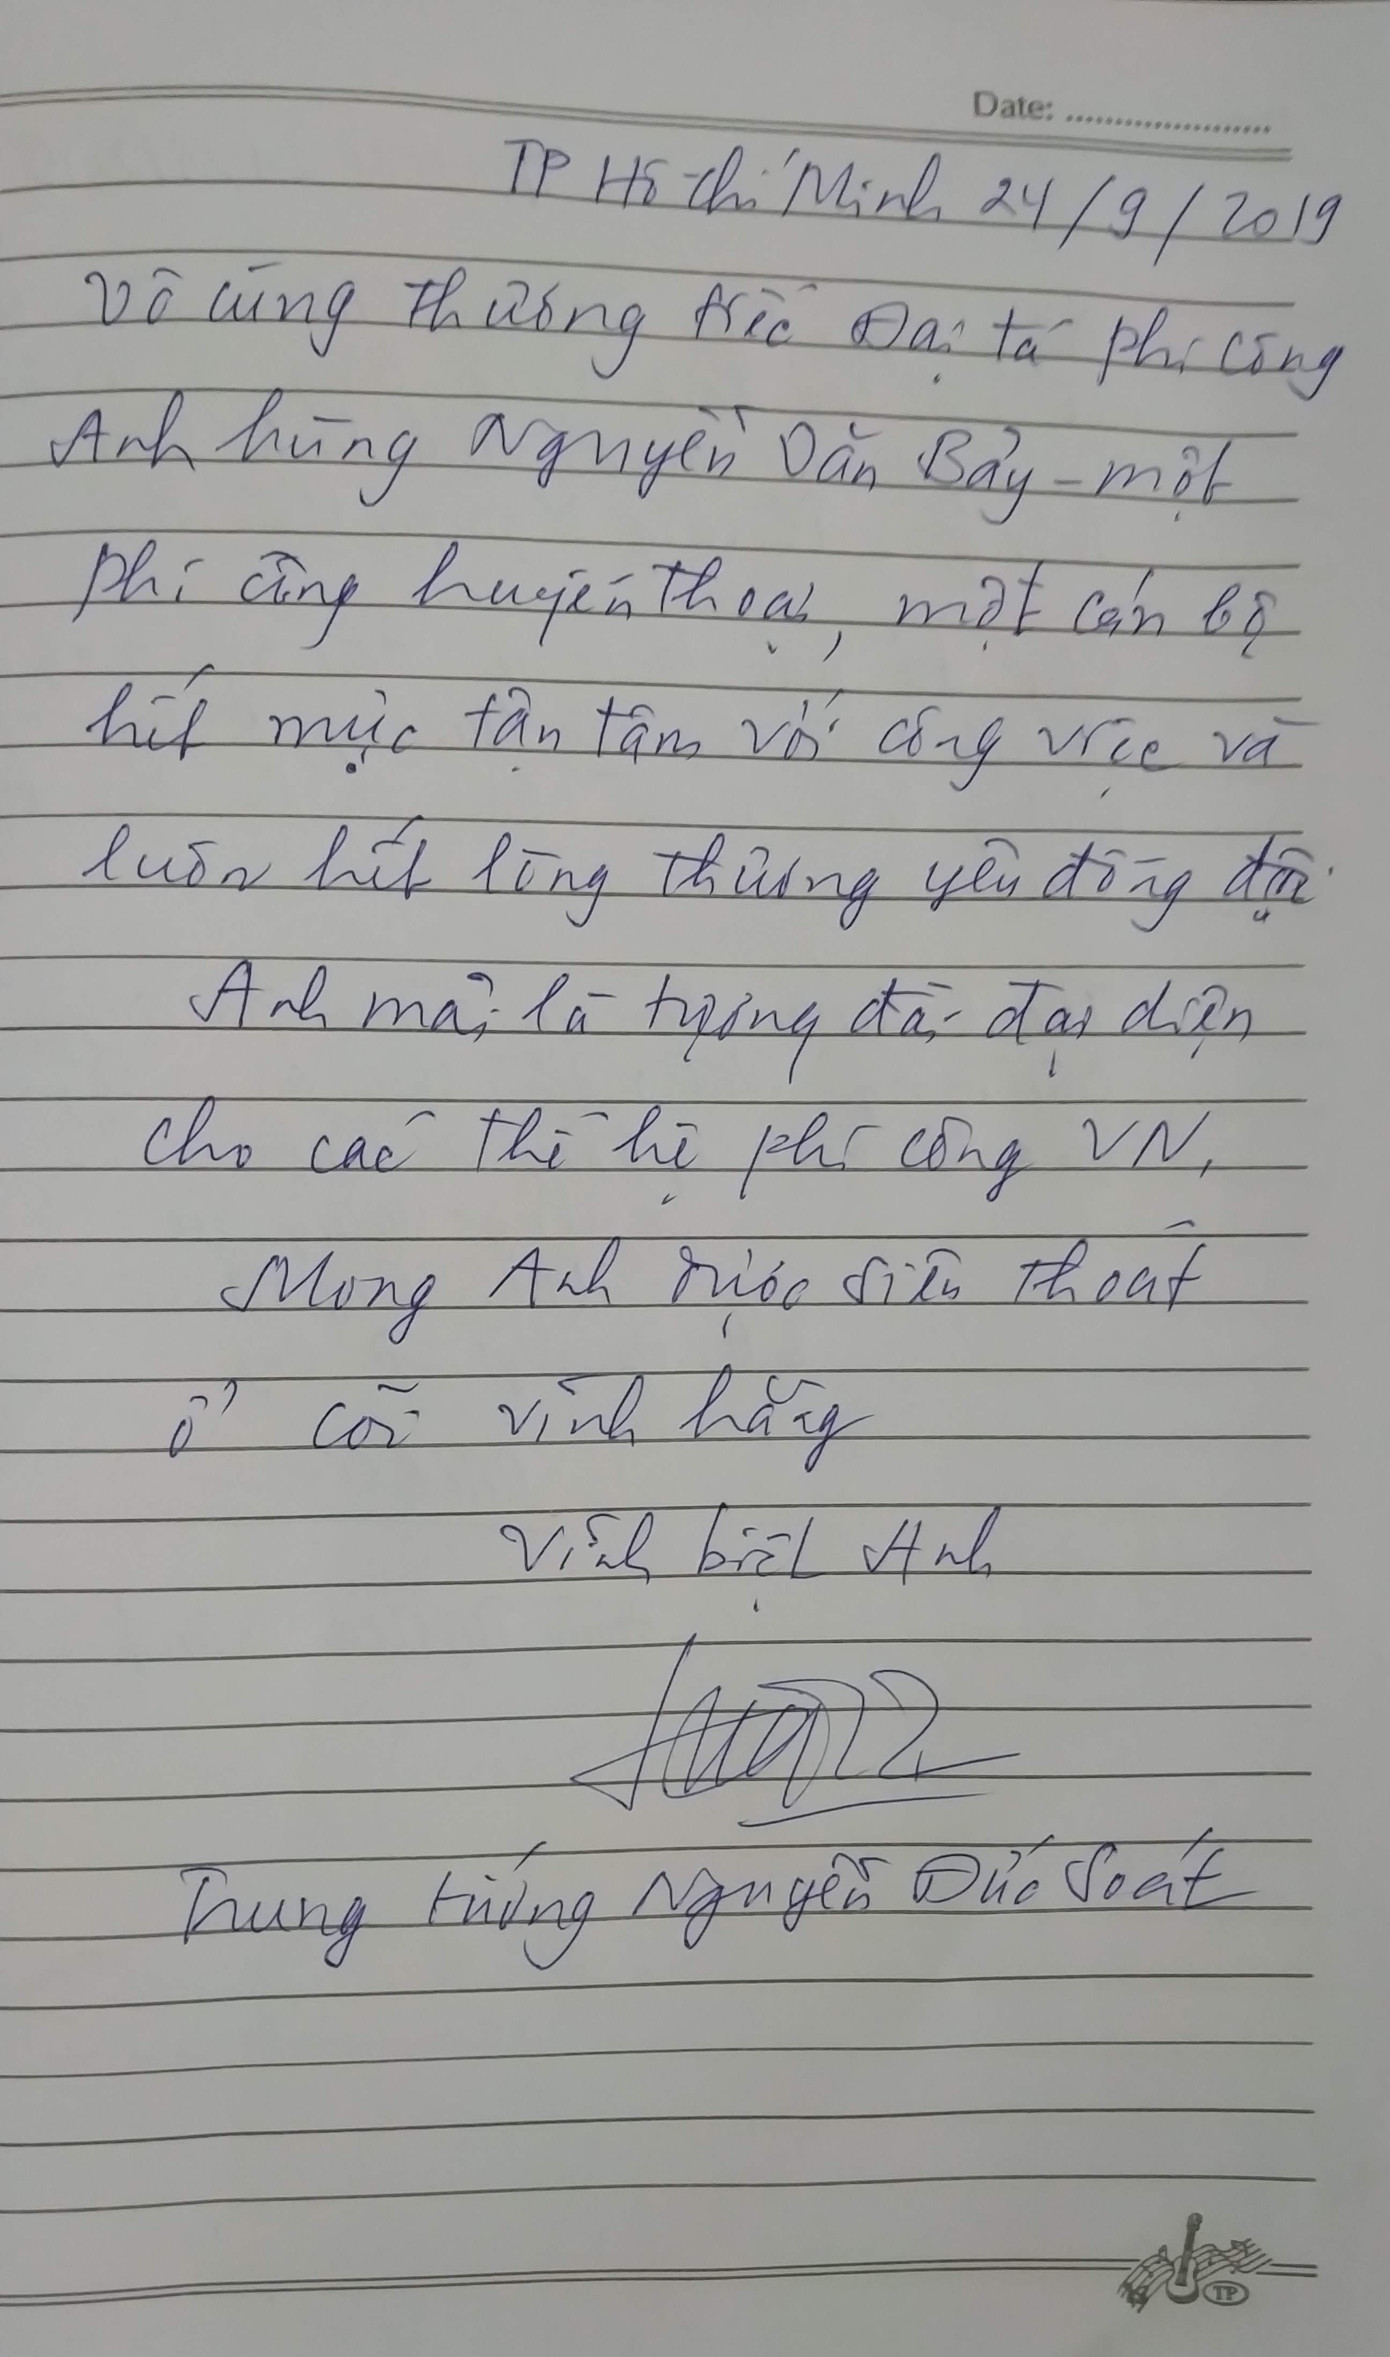 Date: ....................
TP Hồ Chí Minh 24/9/2019
Vô cùng thương tiếc Đại tá phi công
Anh hùng Nguyễn Văn Bảy - một
phi công huyền thoại, một cán bộ
hết mực tận tâm với công việc và
luôn hết lòng thương yêu đồng đội
Anh mãi là tượng đài đại diện
cho các thế hệ phi công VN,
Mong Anh được siêu thoát
ở cõi vĩnh hằng
Vĩnh biệt Anh
Trung tướng Nguyễn Đức Soát
TP